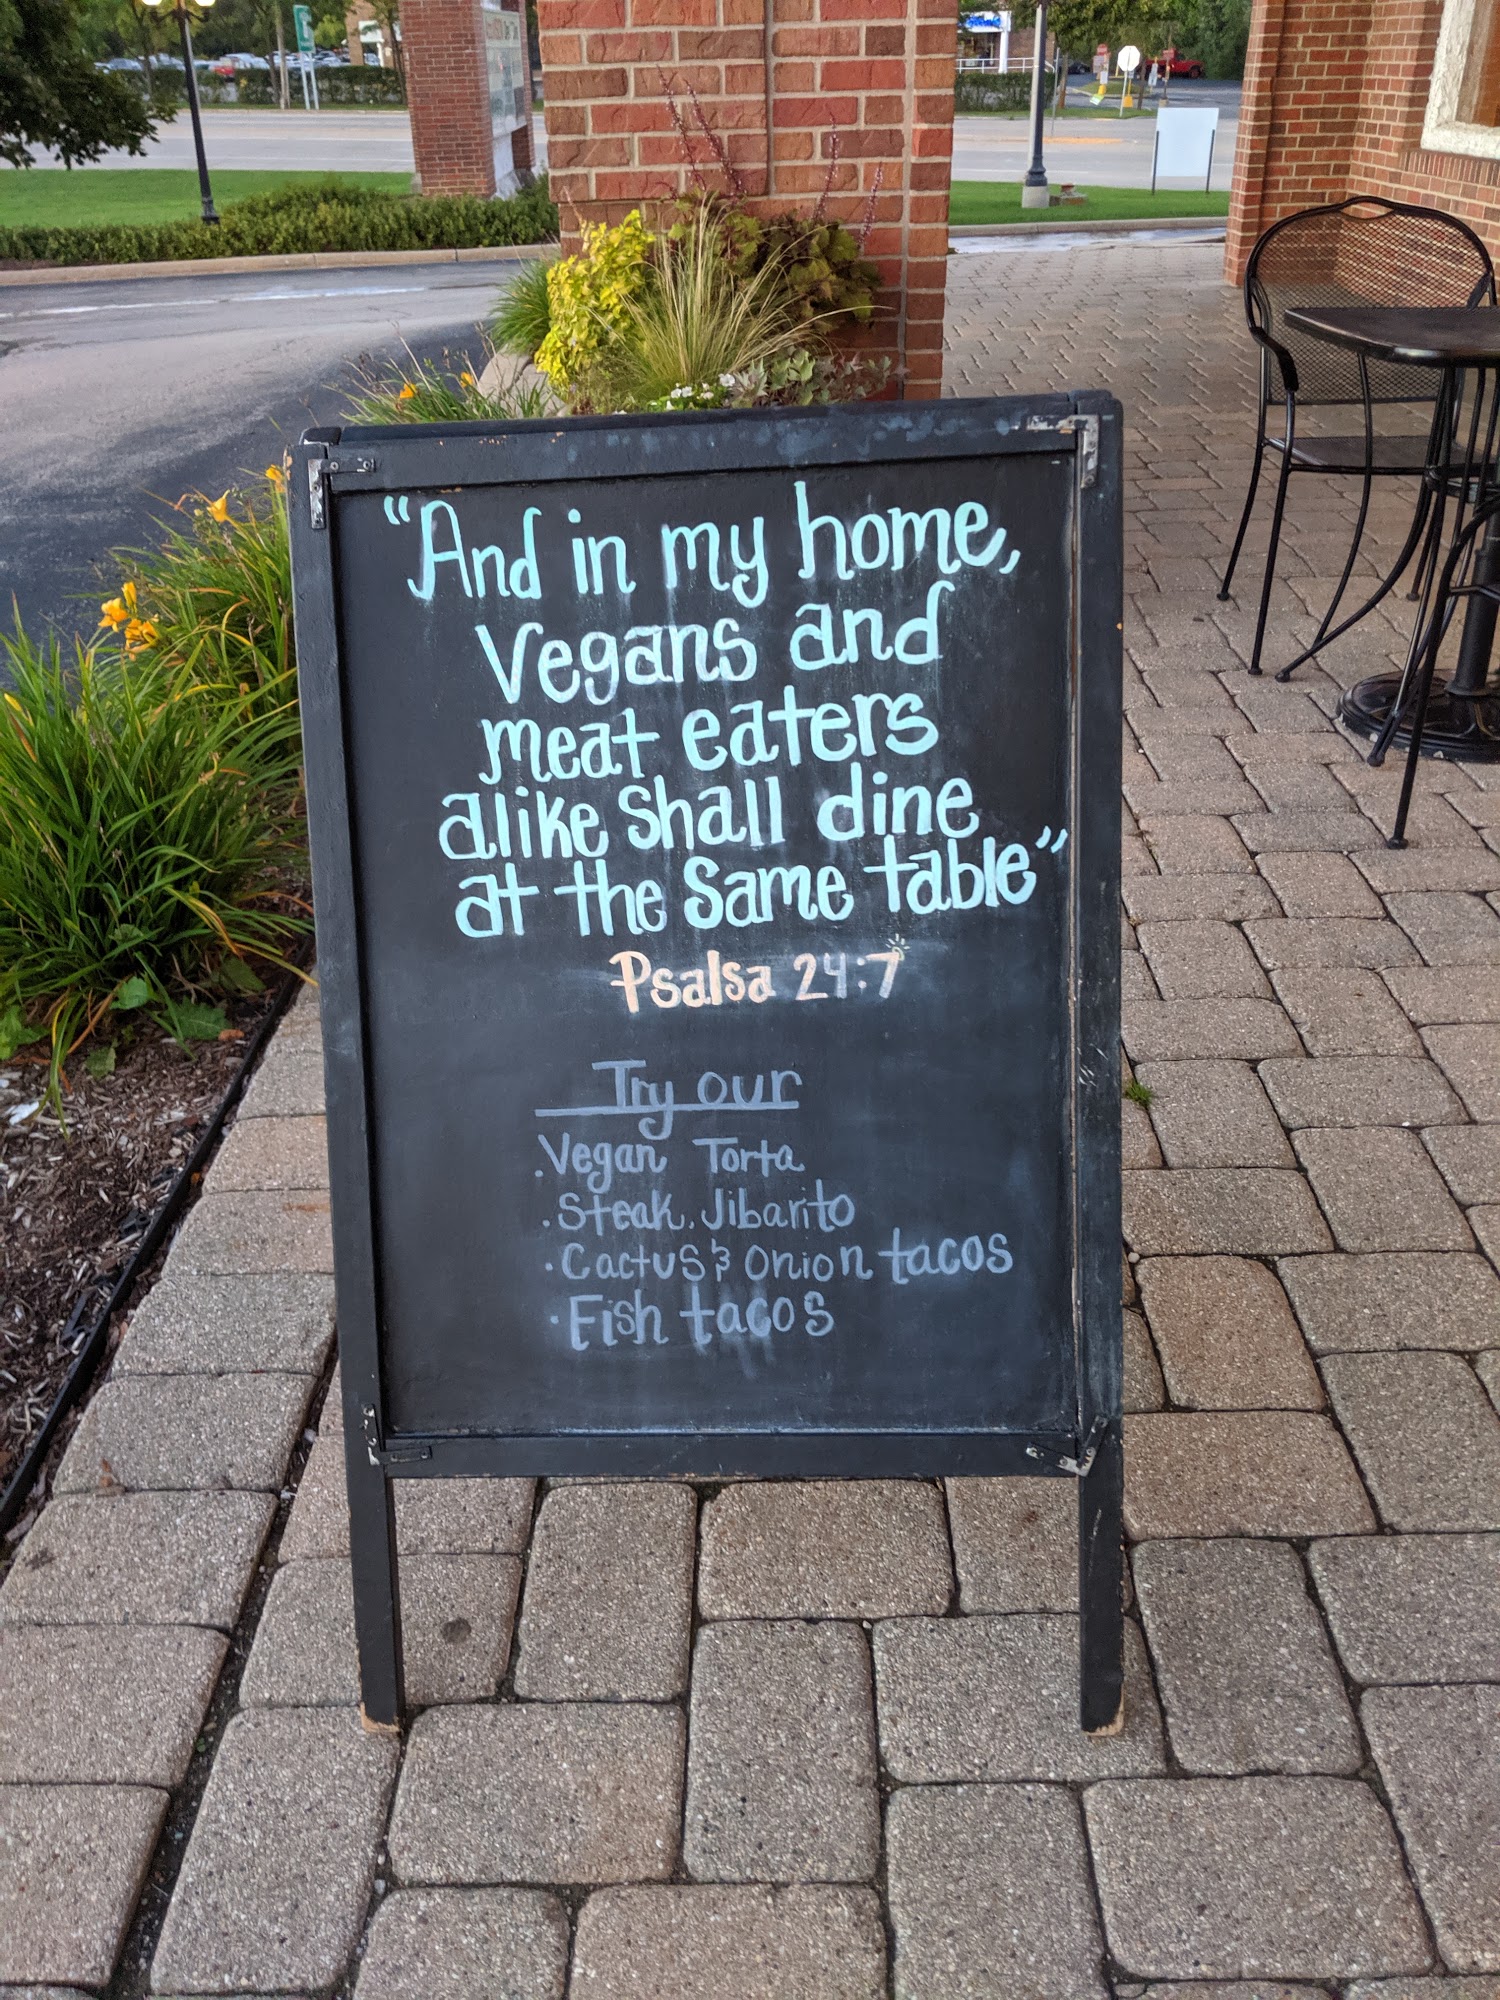 "And in my home,
Vegans and
meat eaters
alike shall dine
at the same table"
Psalsa 24:7
Try our
.Vegan Torta
.Steak Jibarito
·Cactus & Onion tacos
·Fish tacos